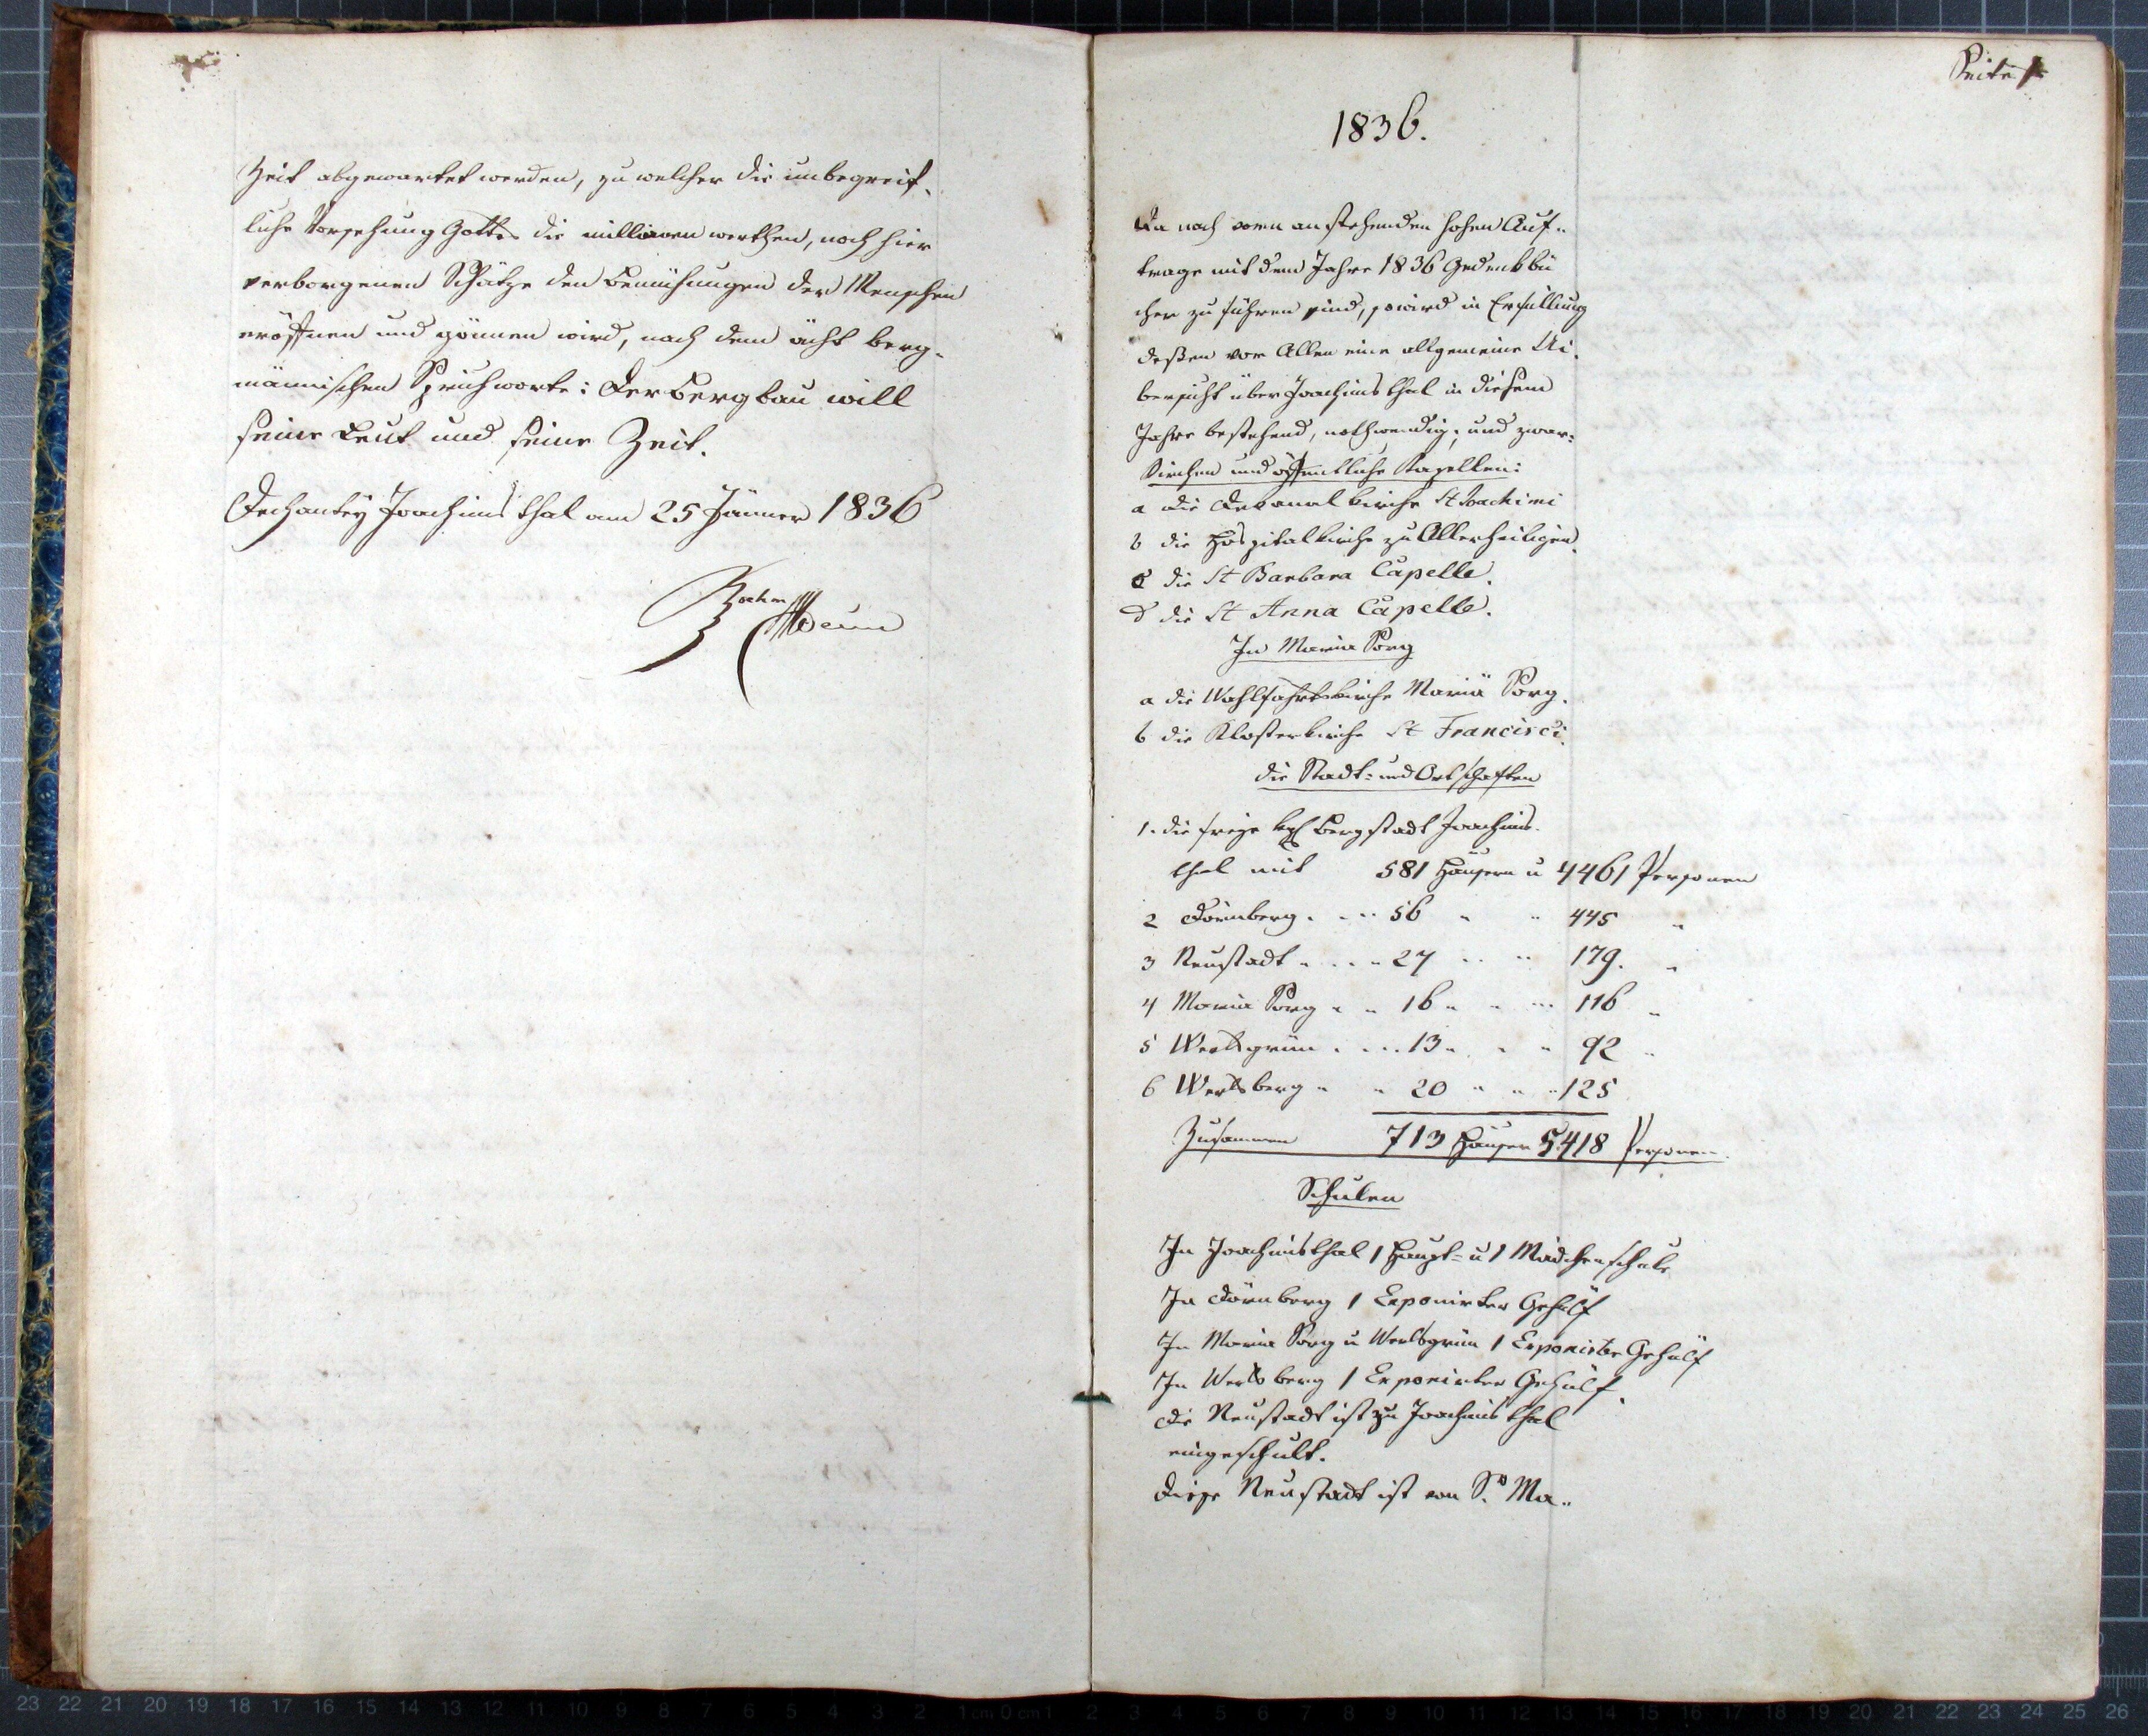 Zeit abgewartet werden, zu welcher die unbegreif-
liche Vorsehung Gottes die millionen werthen, noch hier
verborgenen Schätze den Bemühungen der Menschen
eröffnen und gönnen wird, nach dem ächt berg-
männischen Spruchworte: Der Bergbau will
seine Leut und seine Zeit.
Dechantey Joachimsthal am 25 Jänner 1836
Seite 1
1836.
Da nach vorn anstehenden hohen Auf-
trage mit dem Jahre 1836 Gedenkbü
cher zu führen sind, so wird in Erfüllung
deßen vor Allen eine allgemeine Ui-
bersicht über Joachimsthal in diesem
Jahre bestehend, nothwendig, und zwar:
Kirchen und öffentliche Kapellen:
a die Dekanalkirche St Joachimi
b die Hospitalkirche zu Allerheiligen.
c die St Barbara Capelle.
d die St Anna Capelle.
In Maria Sorg
a die Wahlfahrtskirche Mariä Sorg.
b die Klosterkirche St Francisci.
die Stadt- und Ortschaften
1. die freye kgl Bergstadt Joachims-
thal mit 581 Häusern u 4461 Personen
2 Dürnberg . . . . 56 " " 445 "
3 Neustadt . . . . 27 " " 179. "
4 Maria Sorg " " 16 " " " 116 "
5 Werlsgrün . . . . 13 " " " 92 "
6 Werlsberg " " 20 " " " 125
Zusammen 713 Häuser 5418 Personen.
Schulen
In Joachimsthal 1 Haupt- u 1 Mädchenschule
In Dürnberg 1 Exponirter Gehülf
In Maria Sorg u Werlsgrün 1 Exponirter Gehülf
In Werlsberg 1 Exponirter Gehülf.
Die Neustadt ist zu Joachimsthal
eingeschult.
Diese Neustadt ist von Sr Ma-